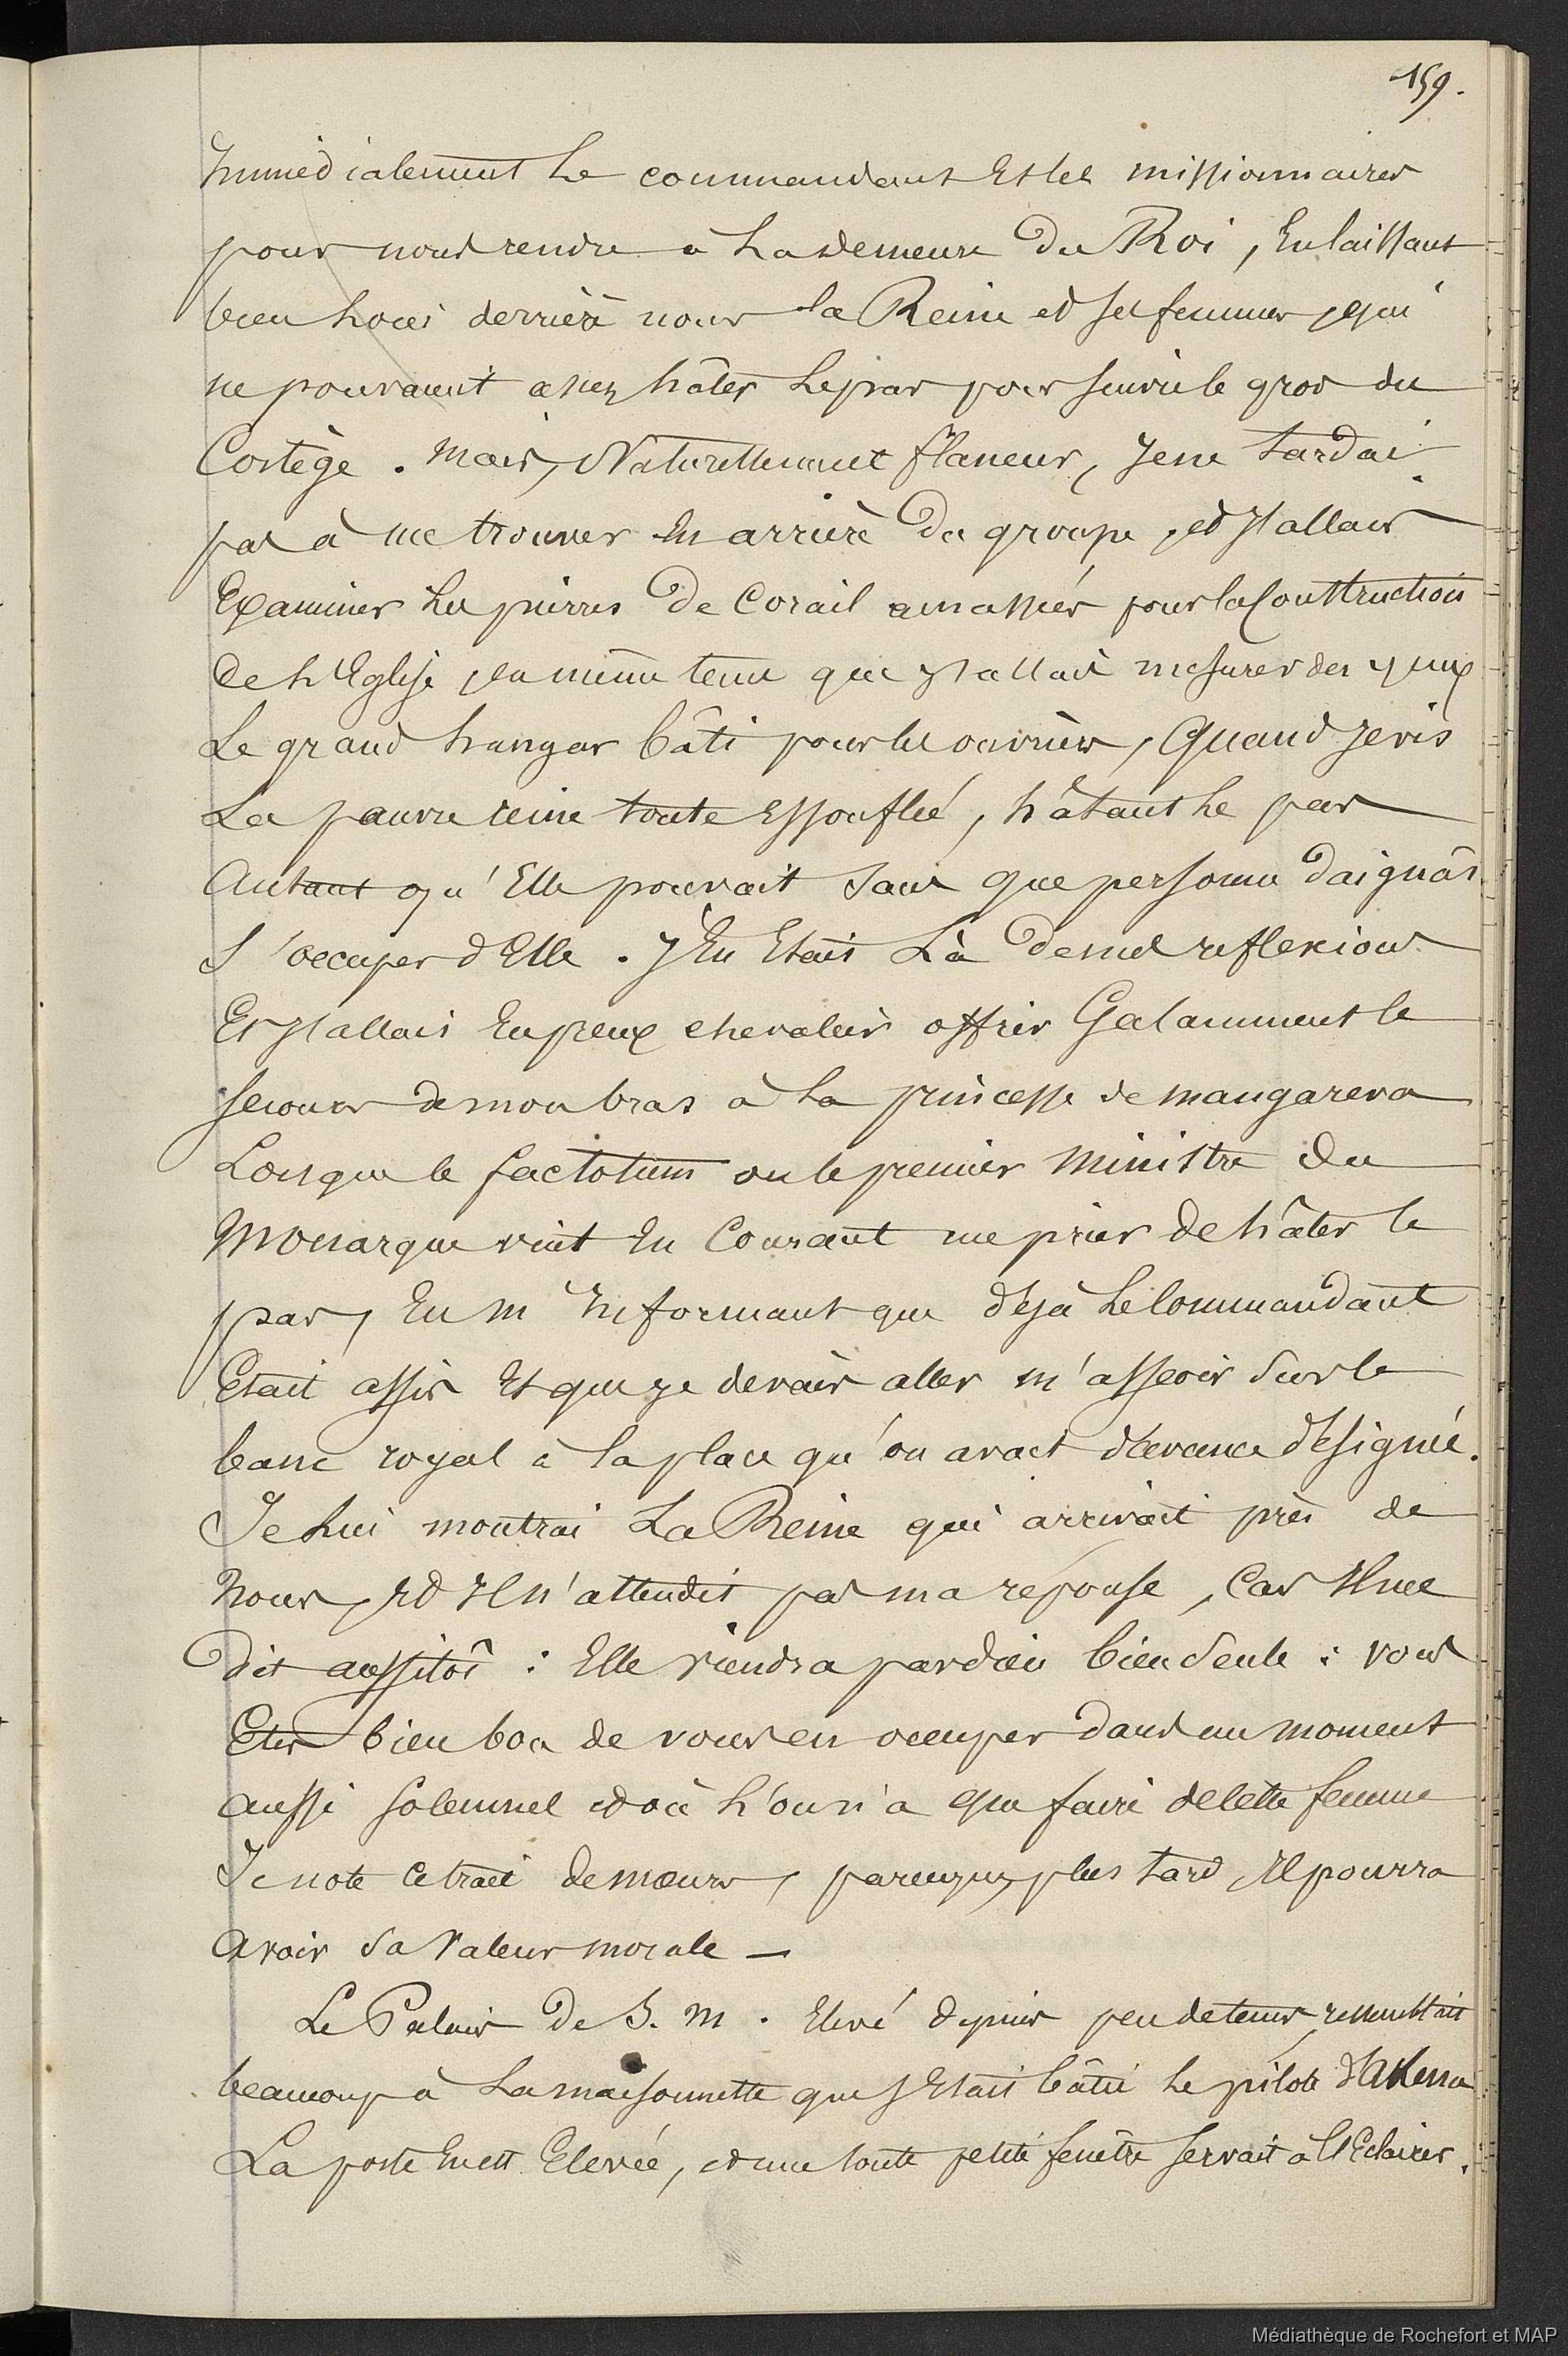 159.
Immédiatement Le commandant Et les missionnaires
pour nous rendre a La demeure Du Roi, En laissant
bien Loin derrière nous la Reine et ses femmes, qui
ne pouvaient assez hâter Le pas pour suivre le gros du
Cortège. Mais, Naturellement flaneur, Je ne tardai
pas à me trouver En arrière Du groupe, et J'allais
Examiner Les pierres De Corail amassées pour la Construction
De L'Eglise, en même tems que J'allais mesurer des yeux
Le grand hangar bâti pour les ouvriers, Quand Je vis
La pauvre reine toute Essouflée, hâtant Le pas
Autant qu'Elle pouvait Sans que personne Daignât
S'occuper d'Elle. J'En Etais Là De mes reflexions
Et J'allais En preux chevalier offrir Galamment le
Secours de mon bras à La princesse de mangareva
Lorsque le factotum ou le premier Ministre Du
Monarque vint En Courant me prier De hâter le
pas, En m'Informant que déjà Le Commandant
Etait assis Et que je devais aller m'asseoir Sur le
banc royal à la place qu'on avait d'avance désignée.
Je Lui montrai La Reine qui arrivait près de
Nous, et Il n'attendit pas ma réponse, Car Il me
Dit aussitôt : Elle viendra pardieu bien Seule : vous
Etes bien bon de vous en occuper dans un moment
Aussi Solennel et où L'on n'a que faire de Cette femme
Je note Ce trait De mœurs, parceque, plus tard, Il pourra
Avoir Sa Valeur morale —
Le Palais De S. M. Elevé Depuis peu de tems, ressemblait
beaucoup à La maisonnette que s'Etait bâtie Le pilote d'Akena
La porte En est Elevée, et une toute petite fenêtre Servait à l'Eclairer.
Médiathèque de Rochefort et MAP